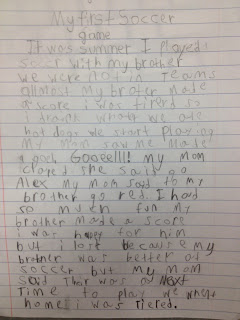 My first Soccer
game
It was summer I played
soccer with my brother
we were not in Teams
allmost My broter Made
a score i was tired so
i drank we ate
hot dogs we start Playing
My Mom saw Me Made
a goal. Gooeelll! My Mom
claped she said go
Alex My Mom said to my
brother go red. I had
so much fun My
brother made a score
I was happy for him
but i lost because my
brother was better at
soccer but My mom
said Thar was a Next
Time to play we whent
home i was tiered.